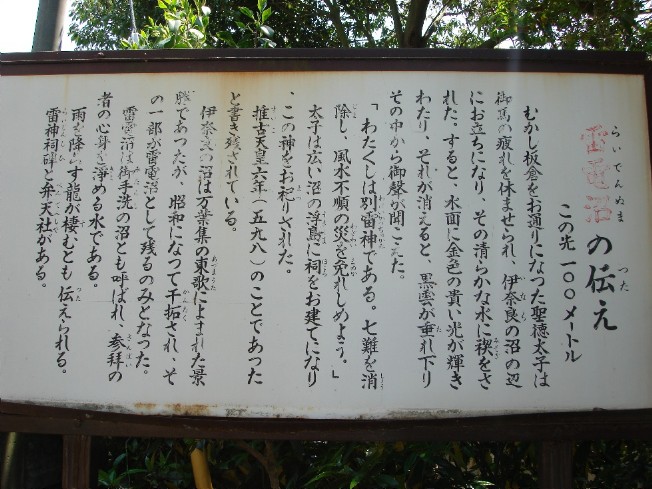 雷電沼の伝え
らいでんぬま つた
この先一〇〇メートル
むかし板倉をお通りになつた聖徳太子は
御馬の疲れを休ませられ、伊奈良の沼の辺
にお立ちになり、その清らかな水に禊をさ
れた。すると、水面に金色の貴い光が輝き
わたり、それが消えると、黒雲が垂れ下り
その中から御聲が聞こえた。
「わたくしは別雷神である。七難を消
除し、風水不順の災を免れしめよう。」
太子は広い沼の浮島に祠をお建てになり
、この神をお祀りされた。
推古天皇六年(五九八)のことであった
と書き残されている。
伊奈良の沼は万葉集の東歌によまれた景
勝であつたが、昭和になつて干拓され、そ
の一部が雷電沼として残るのみとなつた。
雷電沼は御手洗の沼とも呼ばれ、参拝の
者の心身を淨める水である。
雨を降らす龍が棲むとも伝えられる。
雷神祠碑と弁天社がある。